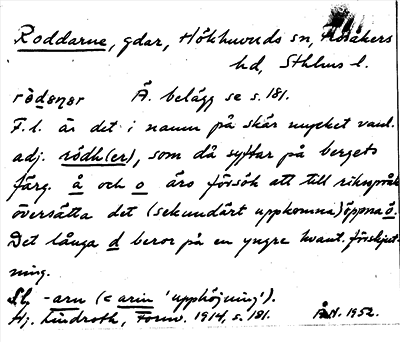 Roddarne, gdar, Hökhuvuds sn, Frösåkers
hd, Sthlms l.
Ä. belägg se s. 181.
F.l. är det i namn på skär mycket vanl.
adj. rödh(er), som då syftar på bergets
färg. å och o äro försök att till riksspråk
översätta det (sekundärt uppkomna) öppna ö.
Det långa d beror på en yngre kvant.förskjut-
ning.
Sl. -arn (< arin 'upphöjning').
Hj. Lindroth, Fornv. 1914, s. 181. 1952.